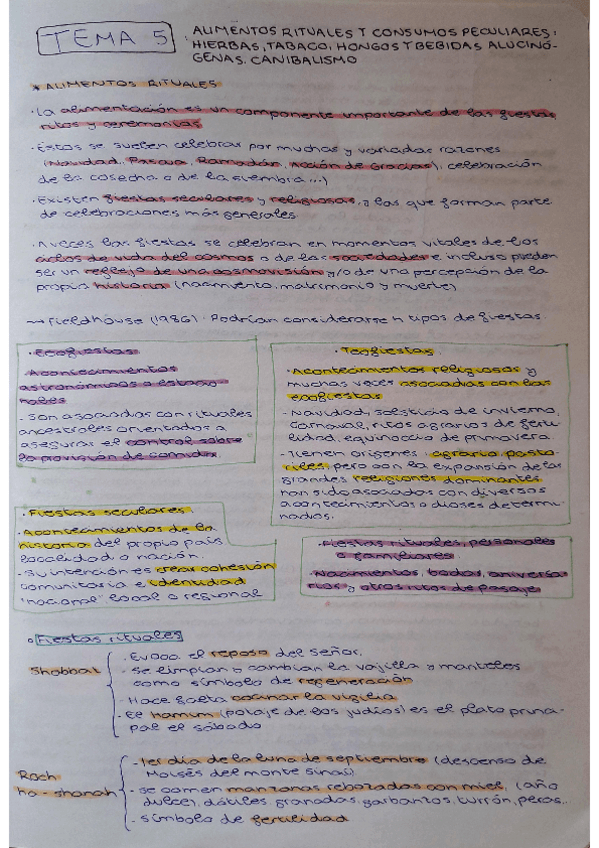 TEMA 5
: ALIMENTOS RITUALES Y CONSUMOS PECULIARES:
HIERBAS, TABACO, HONGOS Y BEBIDAS ALUCINÓ-
GENAS. CANIBALISMO
* ALIMENTOS RITUALES
· La alimentación es un componente importante de las fiestas
ritos y ceremonias
· Estas se suelen celebrar por muchas y variadas razones
(Navidad, Pascua, Ramadán, Acción de Gracias), celebración
de la cosecha o de la siembra...)
· Existen fiestas seculares y religiosas, a las que forman parte
de celebraciones más generales
· A veces las fiestas se celebran en momentos vitales de los
ciclos de vida del cosmos o de las sociedades e incluso pueden
ser un reflejo de una cosmovisión y/o de una percepción de la
propia historia (nacimiento, matrimonio y muerte)
→ Fieldhouse (1986). Podrían considerarse 4 tipos de fiestas
· Ecofiestas
· Acontecimientos
astronómicos o estacio-
nales
- Son asociadas con rituales
ancestrales orientados a
asegurar el control sobre
la provisión de comida.
· Teofiestas
· Acontecimientos religiosos y
muchas veces asociadas con las
ecofiestas
- Navidad, solsticio de invierno,
carnaval, ritos agrarios de ferti-
lidad, equinoccio de primavera.
- Tienen orígenes agrario pasto-
riles, pero con la expansión de las
grandes religiones dominantes
han sido asociadas con diversos
acontecimientos o dioses determi-
nados.
· Fiestas seculares
· Acontecimientos de la
historia del propio país
localidad o nación.
- Su intención es crear cohesión
comunitaria e identidad
"nacional", local o regional
· Fiestas rituales, personales
o familiares
· Nacimientos, bodas, aniversa-
rios y otros ritos de pasaje
· Fiestas rituales
Shabbat
· Evoca el reposo del Señor.
- Se limpian o cambian la vajilla y manteles
como símbolo de regeneración
- Hace falta cocinar la vigilia
- El Hamum (potaje de los judíos) es el plato princi-
pal el sábado
Roch
ha-shanah
- 1er día de la luna de septiembre (descenso de
Moisés del monte Sinaí)
- se comen manzanas rebozadas con miel, (año
dulce), dátiles, granadas, garbanzos, turrón, peras...
- símbolo de fertilidad